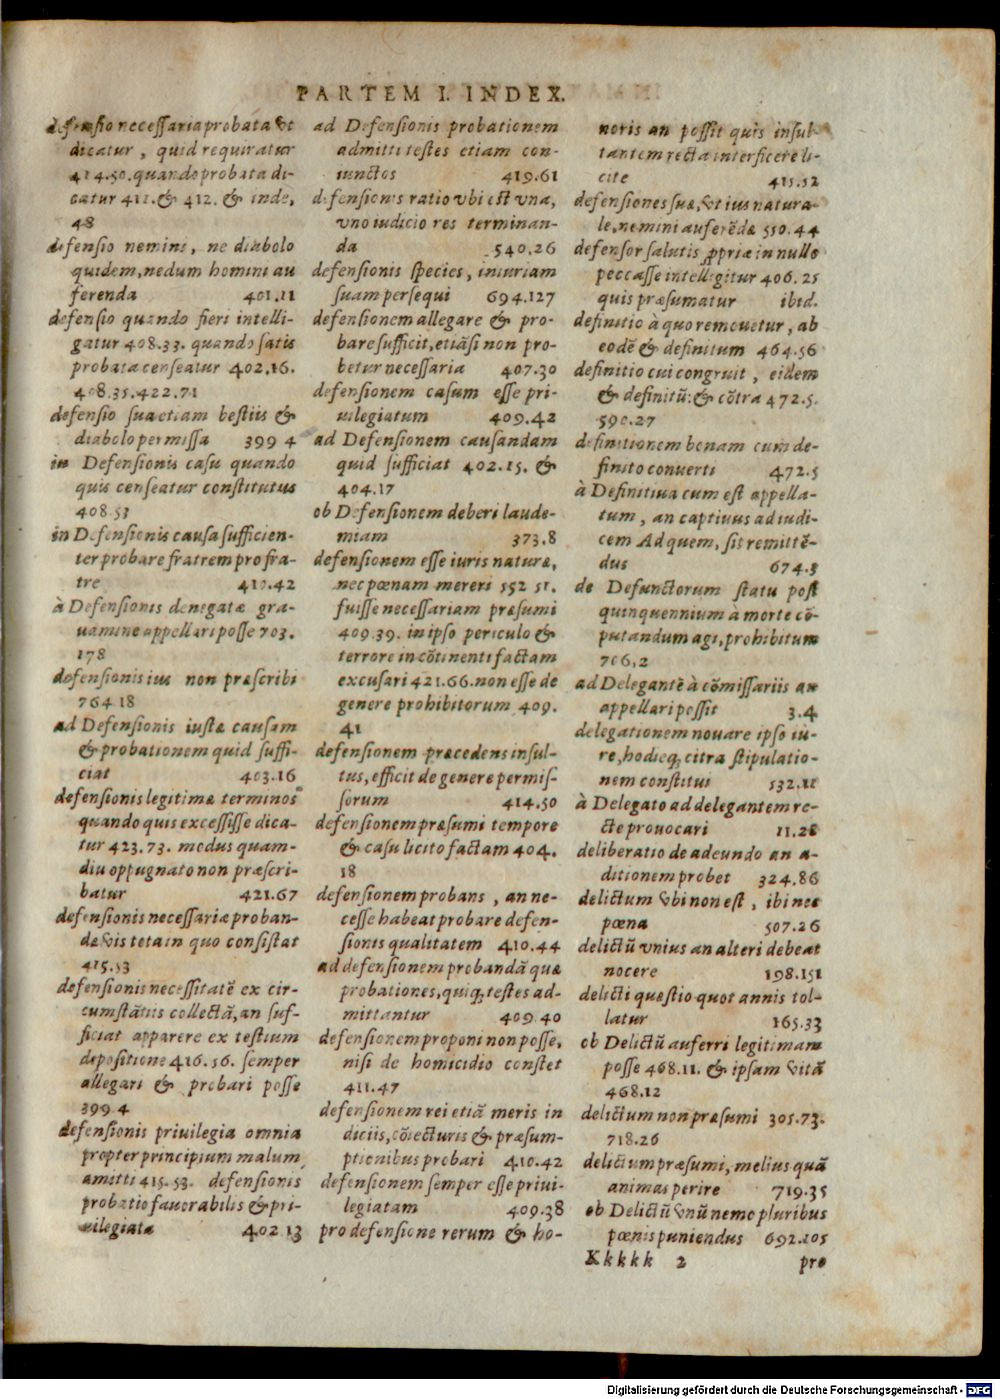 PARTEM I. INDEX.
defensio necessaria probata vt
dicatur, quid requiratur
414.50. quando probata di-
catur 411. & 412. & inde,
48
defensio nemini, ne diabolo
quidem, nedum homini au
ferenda 401.11
defensio quando fieri intelli-
gatur 408.33. quando satis
probata censeatur 402.16.
408.35.422.71
defensio sua etiam bestiis &
diabolo permissa 399 4
in Defensionis casu quando
quis censeatur constitutus
408.53
in Defensionis causa sufficien-
ter probare fratrem pro fra-
tre 410.42
à Defensionis denegatæ gra-
uamine appellari posse 703.
178
defensionis ius non præscribi
764.18
ad Defensionis iustæ causam
& probationem quid suffi-
ciat 403.16
defensionis legitimæ terminos
quando quis excessisse dica-
tur 423.73. modus quam-
diu oppugnato non præscri-
batur 421.67
defensionis necessariæ proban-
dæ vis tota in quo consistat
415.53
defensionis necessitatē ex cir-
cumstātiis collectā, an suf-
ficiat apparere ex testium
depositione 416.56. semper
allegari & probari posse
399 4
defensionis priuilegia omnia
propter principium malum
amitti 415.53. defensionis
probatio fauorabilis & pri-
uilegiata 402.13
ad Defensionis probationem
admitti testes etiam con-
iunctos 419.61
defensionis ratio vbi est vna,
vno iudicio res terminan-
da 540.26
defensionis species, iniuriam
suam persequi 694.127
defensionem allegare & pro-
bare sufficit, etiāsi non pro-
betur necessaria 407.30
defensionem casum esse pri-
uilegiatum 409.42
ad Defensionem causandam
quid sufficiat 402.15. &
404.17
ob Defensionem deberi laude-
miam 373.8
defensionem esse iuris naturæ,
nec pœnam mereri 552 51.
fuisse necessariam præsumi
409.39. in ipso periculo &
terrore in cōtinenti factam
excusari 421.66. non esse de
genere prohibitorum 409.
41
defensionem præcedens insul-
tus, efficit de genere permis-
sorum 414.50
defensionem præsumi tempore
& casu licito factam 404.
18
defensionem probans, an ne-
cesse habeat probare defen-
sionis qualitatem 410.44
ad defensionem probandā quæ
probationes, quiq; testes ad-
mittantur 409.40
defensionem proponi non posse,
nisi de homicidio constet
411.47
defensionem rei etiā meris in
diciis, cōiecturis & præsum-
ptionibus probari 410.42
defensionem semper esse priui-
legiatam 409.38
pro defensione rerum & ho-
noris an possit quis insul-
tantem recta interficere li-
cite 415.52
defensiones suæ, vt ius natura-
le, nemini auferēdæ 550.44
defensor salutis ꝓpriæ in nullo
peccasse intelligitur 406.25
quis præsumatur ibid.
definitio à quo remouetur, ab
eodē & definitum 464.56
definitio cui congruit, eidem
& definitū: & cōtra 472.5.
590.27
definitionem bonam cum de-
finito conuerti 472.5
à Definitiua cum est appella-
tum, an captiuus ad iudi-
cem Ad quem, sit remittē-
dus 674.5
de Defunctorum statu post
quinquennium à morte cō-
putandum agi, prohibitum
706,2
ad Delegantē à cōmissariis an
appellari possit 3.4
delegationem nouare ipso iu-
re, hodieq; citra stipulatio-
nem constitui 532.11
à Delegato ad delegantem re-
cte prouocari 11.28
deliberatio de adeundo an a-
ditionem probet 324.86
delictum vbi non est, ibi nec
pœna 507.26
delictū vnius an alteri debeat
nocere 198.151
delicti quæstio quot annis tol-
latur 165.33
ob Delictū auferri legitimam
posse 468.11. & ipsam vitā
468.12
delictum non præsumi 305.73.
718.26
delictum præsumi, melius quā
animas perire 719.35
ob Delictū vnū nemo pluribus
pœnis puniendus 692.105
Kkkkk 2 pro
Digitalisierung gefördert durch die Deutsche Forschungsgemeinschaft - DFG